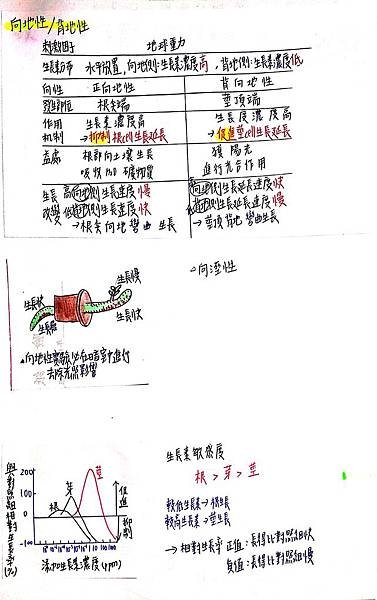 向地性/背地性
刺激因子 地球重力
生長素分布 水平放置,向地側:生長素濃度高,背地側:生長素濃度低
向性 正向地性 背向地性
發生部位 根尖端 莖頂端
作用機制 生長素濃度高 生長素濃度高
→抑制根cell生長延長 →促進莖cell生長延長
益處 根部向土壤生長 獲陽光
吸收H2O礦物質 進行光合作用
生長改變 高向地側生長速度慢 向地側生長延長速度快
低背地側生長速度快 背地側生長延長速度慢
→根尖向地彎曲生長 →莖頂背地彎曲生長
生長慢
生長快
生長快
向溼性
向地性實驗必在暗室中進行
去除光照影響
與對照組相對生長率(%)
200
100
0
-100
根
芽
莖
促進
抑制
添加生長素濃度(ppm)
生長素敏感度
根 > 芽 > 莖
較低生長素→根生長
較高生長素→莖生長
→相對生長率 正值:長得比對照組快
負值:長得比對照組慢